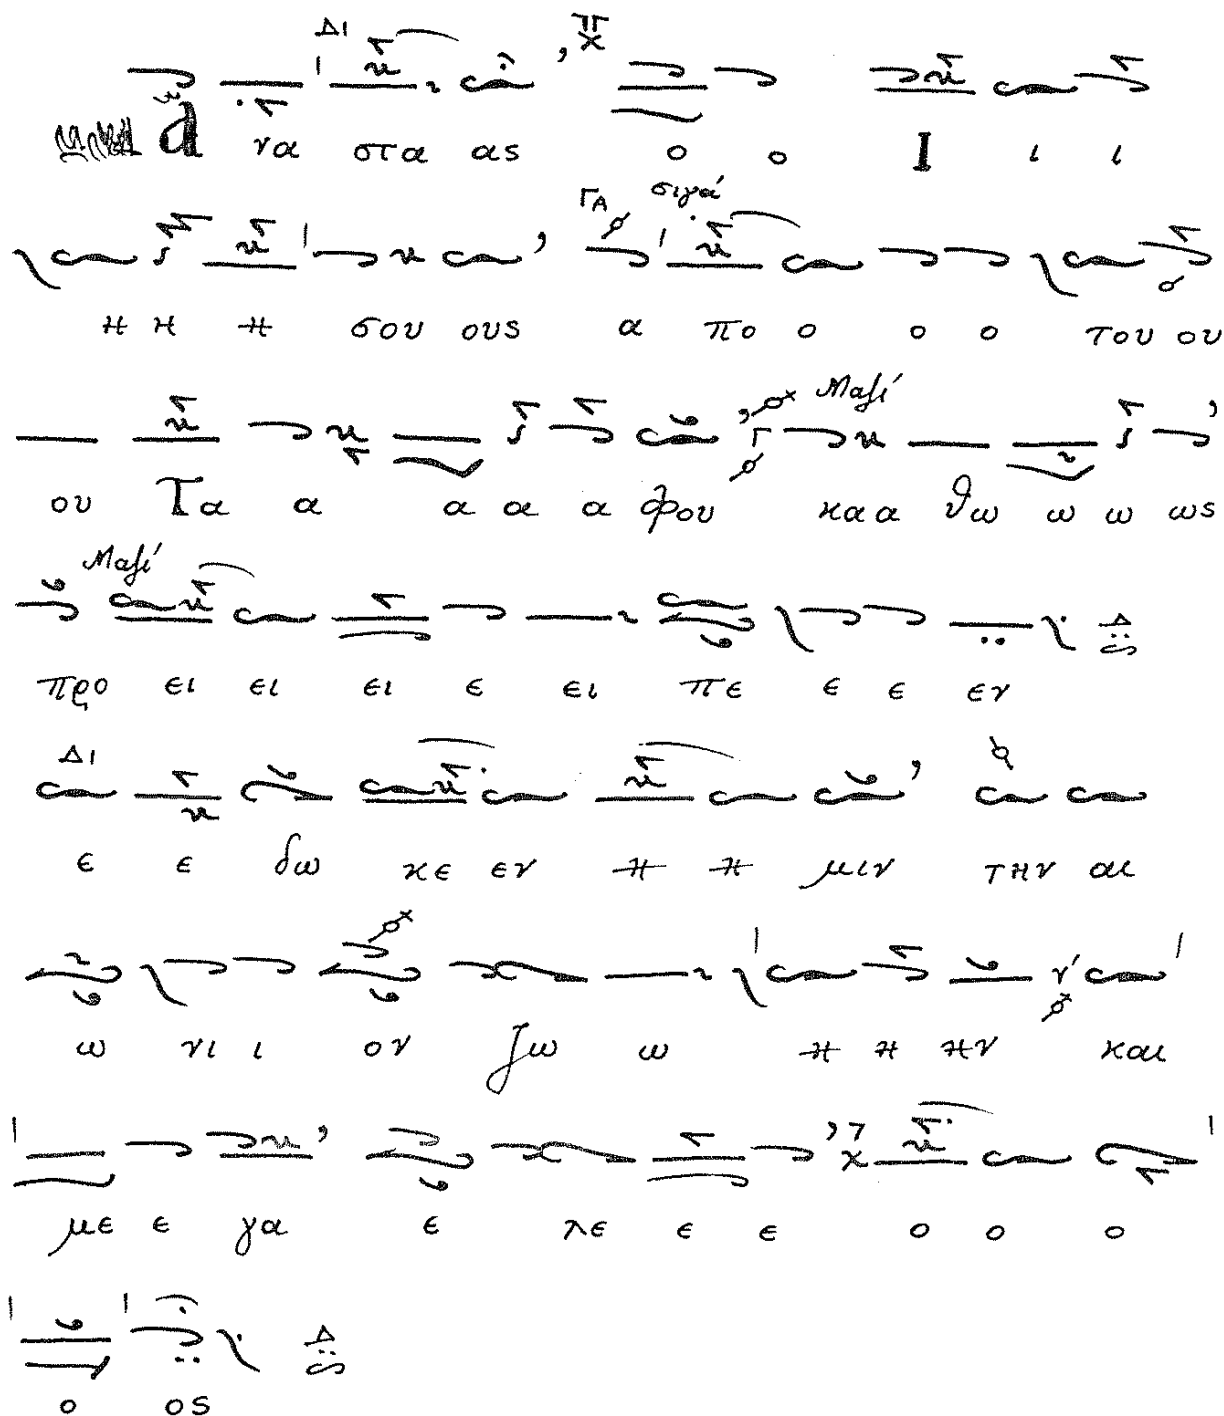 Δι π χ
ἀ να στα ας ο ο Ι ι ι
ΓΑ σιγά
η η η σου ους α πο ο ο ο του ου
Μαζί
ου Τα α α α α φου κα α θω ω ω ως
Μαζί
προ ει ει ει ε ει πε ε ε εν Δ
Δι
ε ε δω κε εν η η μιν την αι
ω νι ι ον ζω ω η η ην και
με ε γα ε λε ε ε ο ο ο
Δ
ο ος